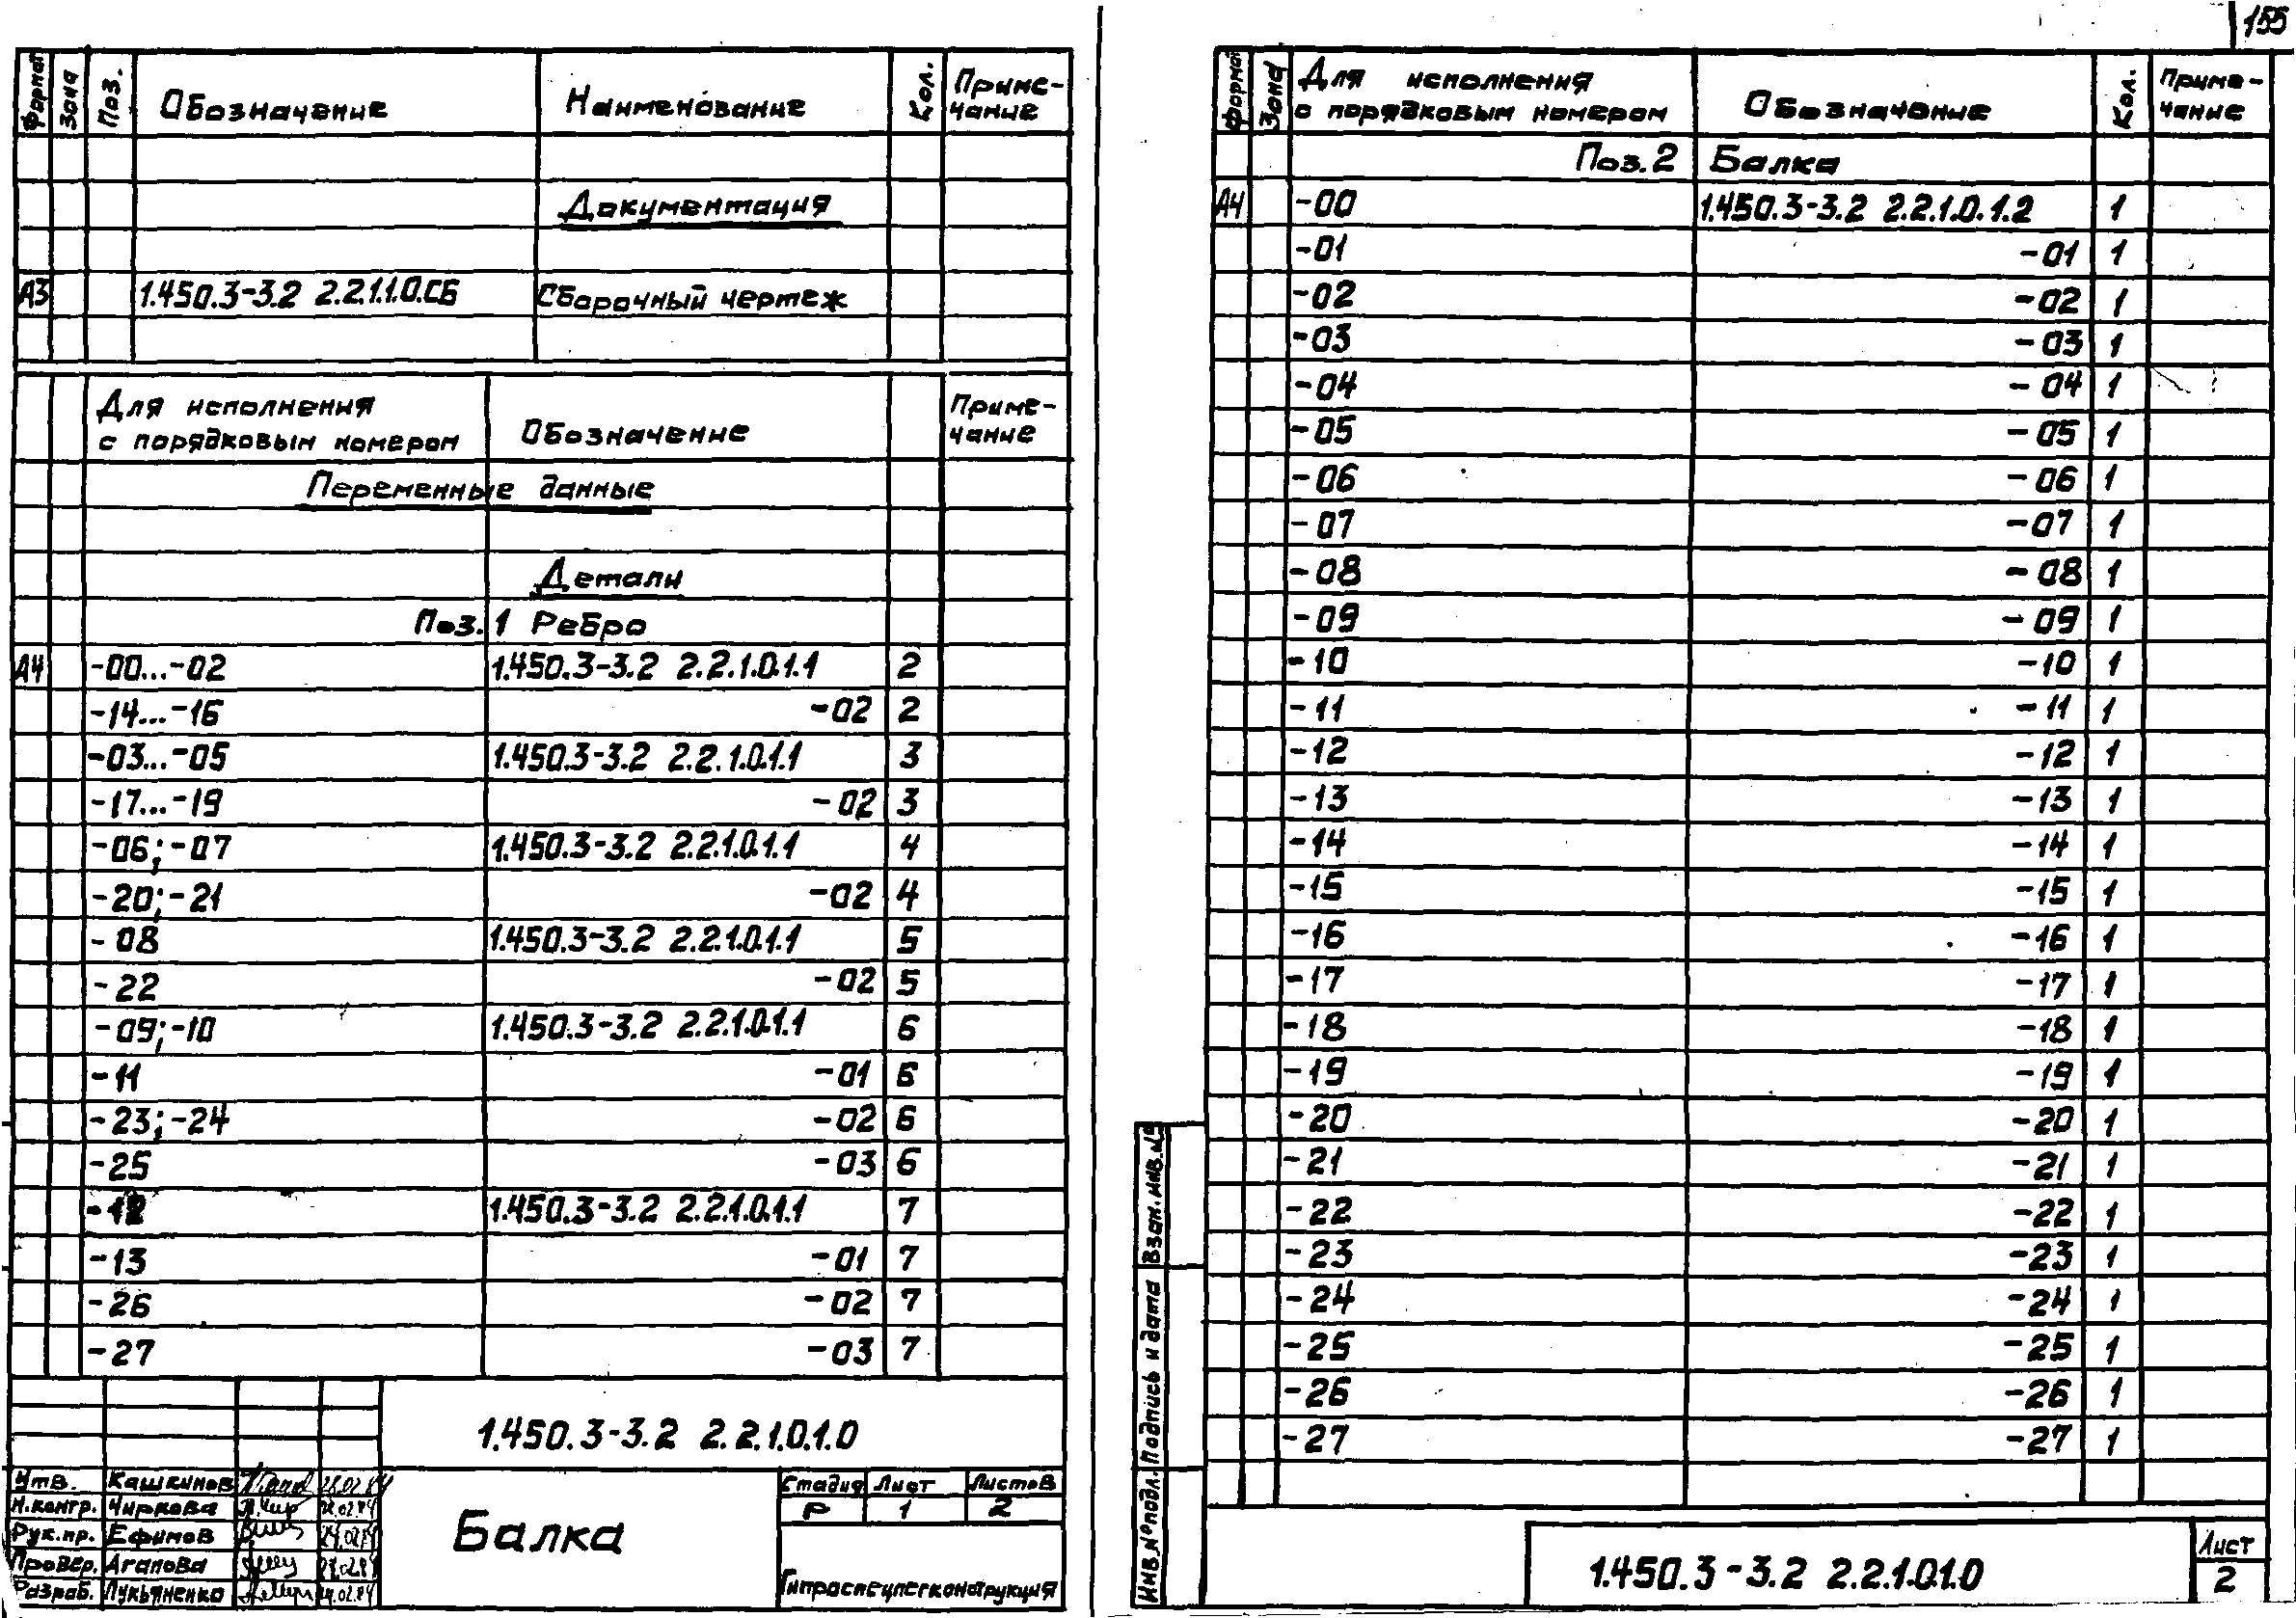 155
Формат Зона Поз. Обозначение Наименование Кол. Приме-
чание
Документация
А3 1.450.3-3.2 2.2.1.1.0.СБ Сборочный чертеж
Для исполнения
с порядковым номером Обозначение Приме-
чание
Переменные данные
Детали
Поз.1 Ребро
А4 -00...-02 1.450.3-3.2 2.2.1.0.1.1 2
-14...-16 -02 2
-03...-05 1.450.3-3.2 2.2.1.0.1.1 3
-17...-19 -02 3
-06;-07 1.450.3-3.2 2.2.1.0.1.1 4
-20;-21 -02 4
-08 1.450.3-3.2 2.2.1.0.1.1 5
-22 -02 5
-09;-10 1.450.3-3.2 2.2.1.0.1.1 6
-11 -01 6
-23;-24 -02 6
-25 -03 6
-12 1.450.3-3.2 2.2.1.0.1.1 7
-13 -01 7
-26 -02 7
-27 -03 7
1.450.3-3.2 2.2.1.0.1.0
Утв. Кашкинов 28.02.84
Н.контр. Чиркова 28.02.84
Рук.пр. Ефимов 24.02.84
Провер. Агапова 24.02.84
Разраб. Лукьяненко 24.02.84
Балка
Стадия Лист Листов
Р 1 2
Гипроспецлегконструкция
Формат Зона Для исполнения
с порядковым номером Обозначение Кол. Приме-
чание
Поз.2 Балка
А4 -00 1.450.3-3.2 2.2.1.0.1.2 1
-01 -01 1
-02 -02 1
-03 -03 1
-04 -04 1
-05 -05 1
-06 -06 1
-07 -07 1
-08 -08 1
-09 -09 1
-10 -10 1
-11 -11 1
-12 -12 1
-13 -13 1
-14 -14 1
-15 -15 1
-16 -16 1
-17 -17 1
-18 -18 1
-19 -19 1
-20 -20 1
-21 -21 1
-22 -22 1
-23 -23 1
-24 -24 1
-25 -25 1
-26 -26 1
-27 -27 1
Инв.№ подл. Подпись и дата Взам.инв.№
1.450.3-3.2 2.2.1.0.1.0
Лист
2